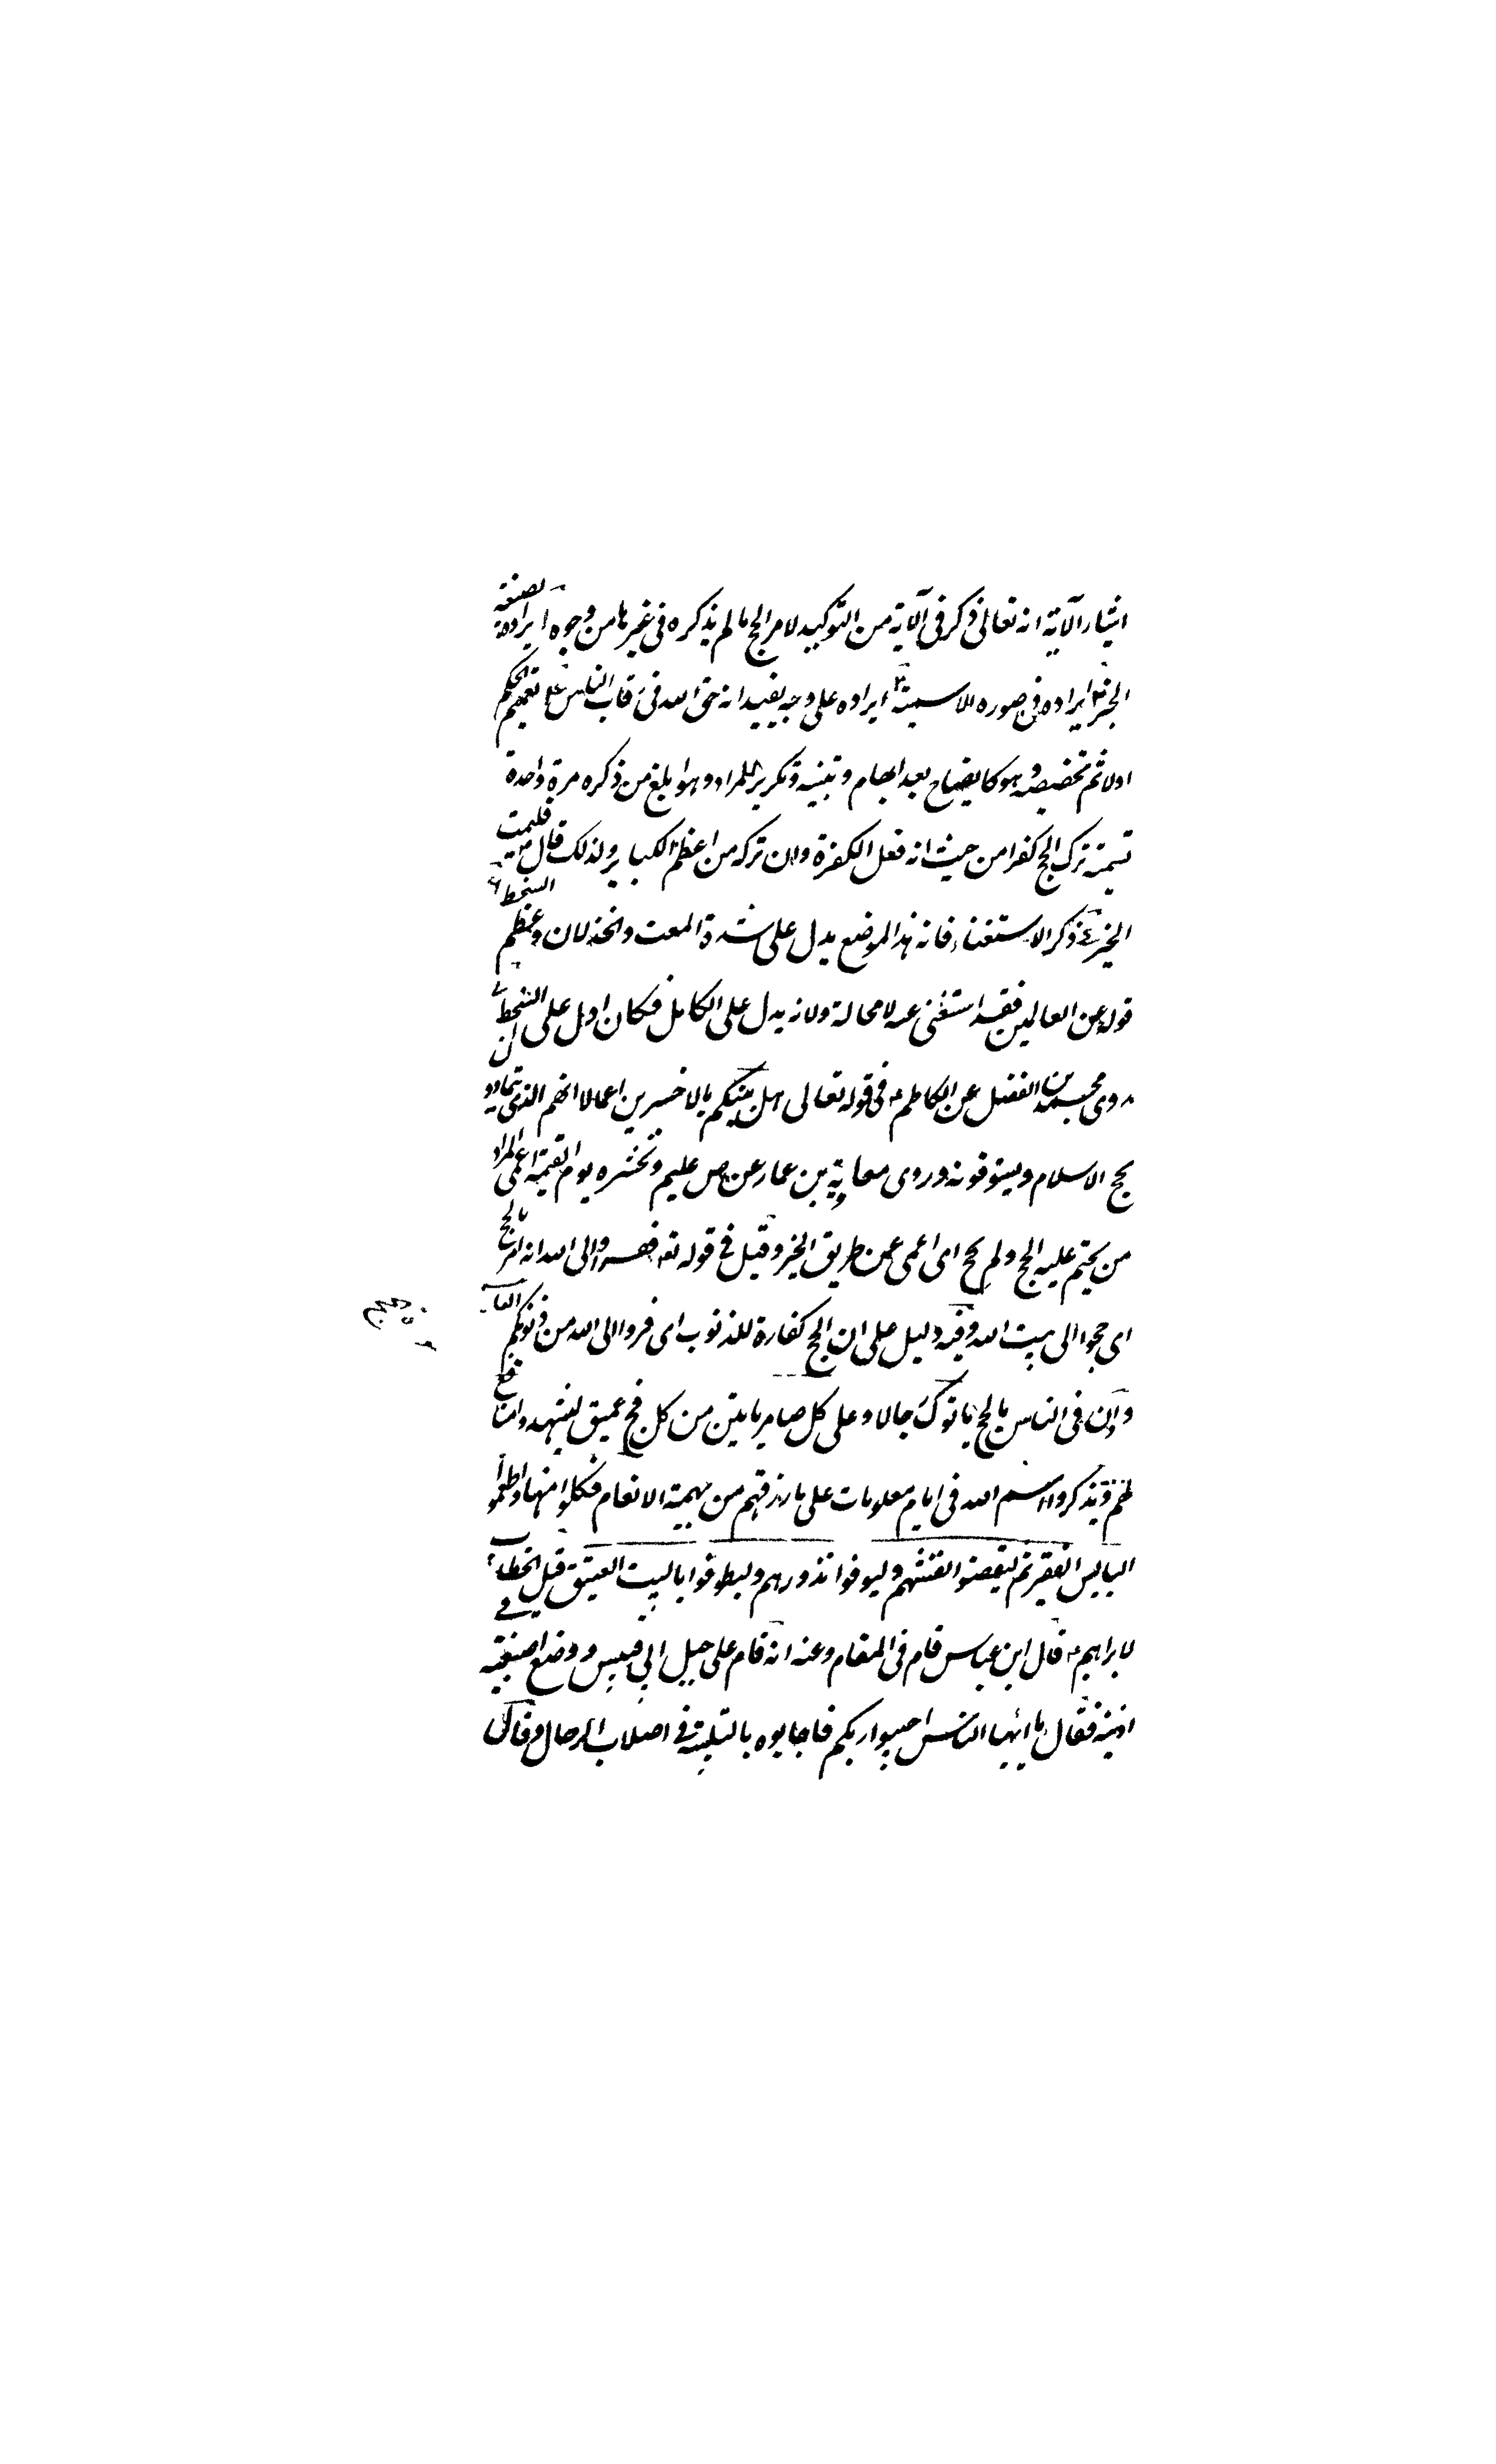 انثار الآية انه تعالى ذكر فى الآية من التوكيد لامر الحج مالم يذكره فى غيرها من وجوه ا ايراده بصيغة
الخبر ٢ ايراده فى صوره الاسمية ٣ ايراده على وجه يفيد انه حق الله فى رقاب الناس ٤ تعميم الحكم
اولا ثم تخصيصه وهو كايضاح بعد ابهام وتبنيه وتكرير للمراد وهو ابلغ من ذكره مرة واحدة
تسمية ترك الحج كفرا من حيث انه فعل الكفرة وان تركه من اعظم الكباير ولذلك قال فليمت
ذكر الاستغناء فانه هذا الموضع يدل على شدة المقت والخذلان وعظم السخط
قوله عن العالمين فقد استغنى عنه لا محالة ولانه يدل على الكامل فكان ادل على السخط
روى محمد بن الفضل عن الكاظم ع فى قوله تعالى هل ننبئكم بالاخسرين اعمالا انهم الذى يتمادون
بحج الاسلام ويسوفونه وروى معاوية بن عمار عن ص عليم ونحشره يوم القيمة اعمى المراد
من يحتم عليه الحج ولم يحج اى اعمى عن طريق الخير وقيل فى قوله تع ففروا الى الله انه امر بالحج
اى حجوا الى بيت الله وفيه دليل على ان الحج كفارة للذنوب اى فروا الى الله من ذنوبكم
واذن فى الناس بالحج ياتوك رجالا وعلى كل ضامر ياتين من كل فج عميق ليشهدوا منافع
لهم ويذكروا اسم الله فى ايام معلومات على ما رزقهم من بهيمة الانعام فكلوا منها واطعموا
البايس الفقير ثم ليقضوا تفثهم وليوفوا نذورهم وليطوفوا بالبيت العتيق قيل الخطاب فى
لابراهيم ع قال ابن عباس قام فى المقام وعنه انه قام على جبل ابى قبيس ووضع اصبعيه
اذنيه فقال يا ايها الناس اجيبوا ربكم فاجابوه بالتلبية فى اصلاب الرجال وقال